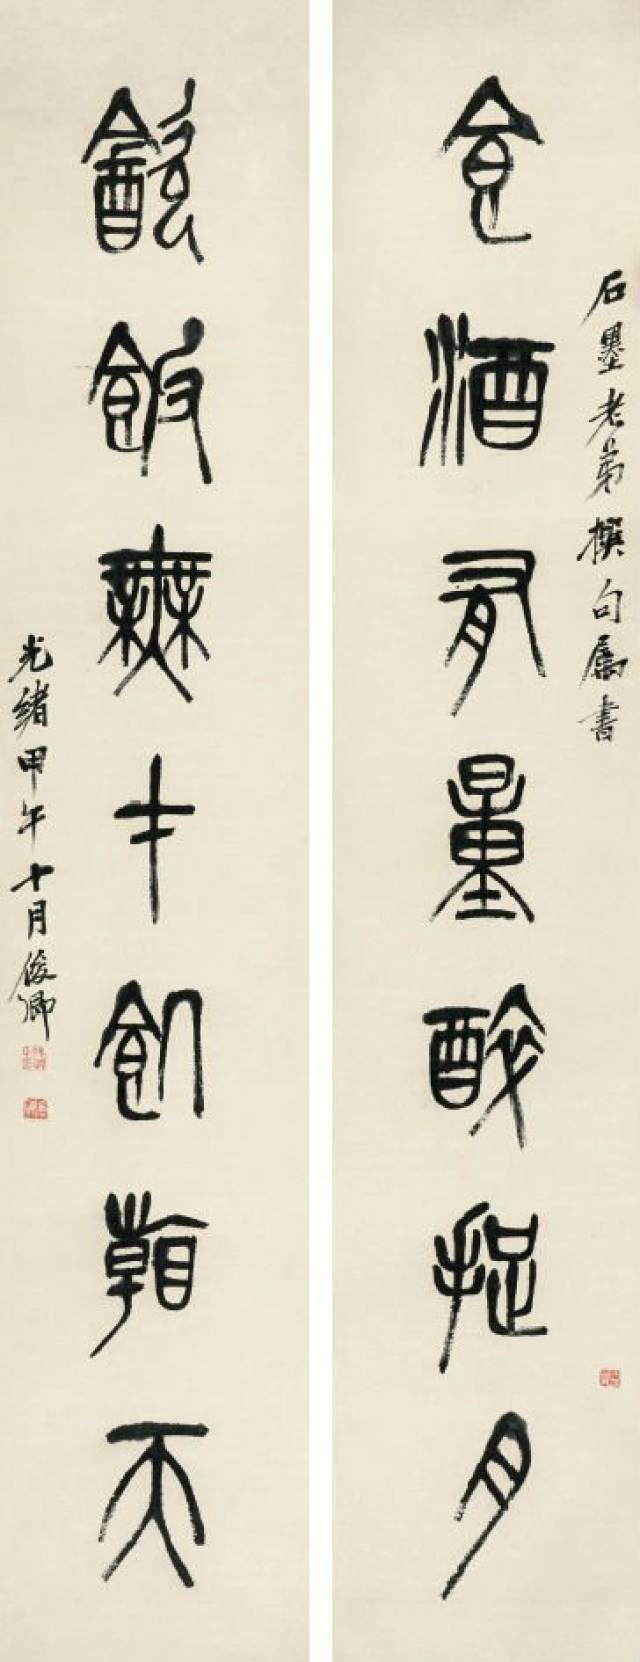 石墨老弟撰句属書
食酒有量醉捉月
飲飯無才飢看天
光緒甲午十月俊卿